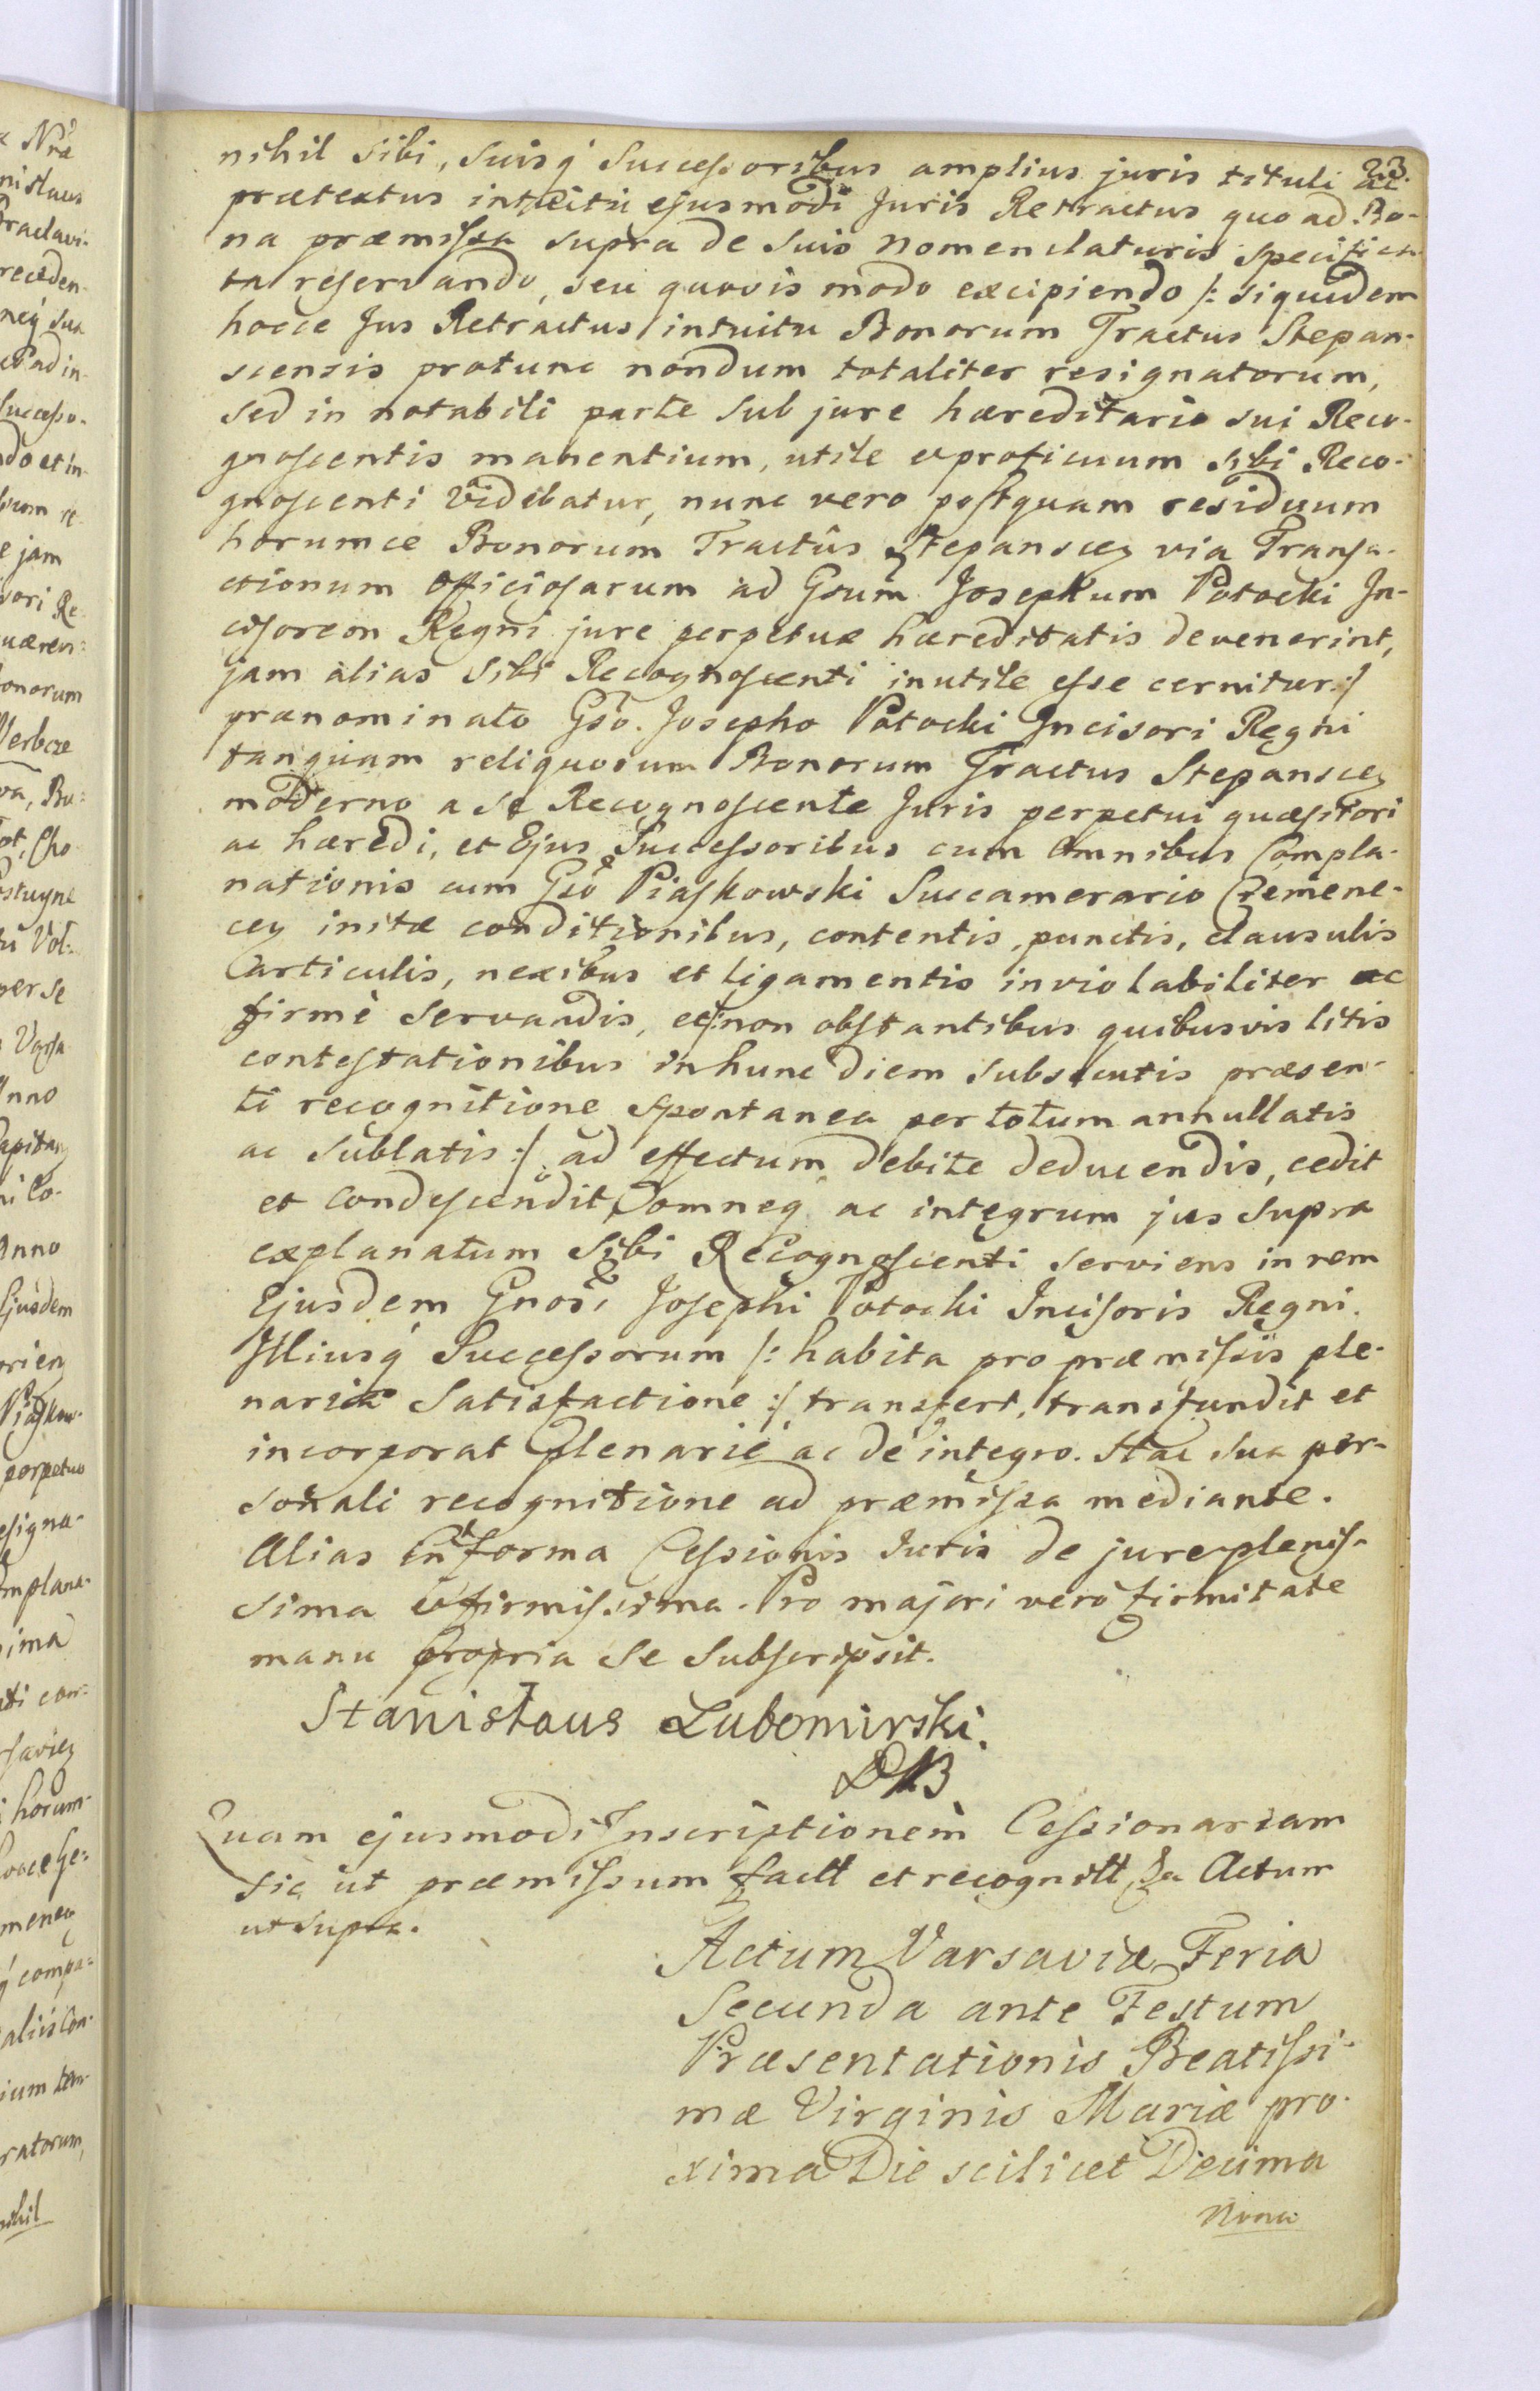 23.
nihil sibi, suisq́ Successoribus amplius juris tituli ac
prætextus intuitu ejusmodi Juris Retractus quo ad Bo-
na præmissa supra de suis Nomenclaturis specifica-
ta reservando, seu quovis modo excipiendo /: siquidem
hocce Jus Retractus intuitu Bonorum Tractus Stepan-
scensis protunc nondum totaliter resignatorum,
sed in notabili parte sub jure hæreditario sui Reco-
gnoscentis manentium, utile et proficuum sibi Reco-
gnoscenti Videbatur, nunc vero postquam residuum
horumce Bonorum Tractûs Stepanscey via Transa-
ctionum Officiosarum ad Gsum Josephum Potocki In-
cisorem Regni jure perpetuæ hæreditatis devenerint,
jam alias sibi Recognoscenti inutile esse cernitur :/
prænominato Gso. Josepho Potocki Incisori Regni
tanquam reliquorum Bonorum Tractus Stepanscey
moderno a se Recognoscente Juris perpetui quæsitori
ac hæredi, et Ejus Successoribus cum Omnibus Compla-
nationis cum Gso Piaskowski Succamerario Cremene-
cey initæ conditionibus, contentis, punctis, clausulis
articulis, nexibus et ligamentis inviolabiliter ac
firmè servandis, et /: non obstantibus quibusvis litis
contestationibus in hunc diem subsecutis præsen-
ti recognitione spontanea per totum annullatis
ac sublatis :/ ad effectum debite deducendis, cedit
et condescendit, omneq ac integrum jus supra
explanatum Sibi Recognoscenti serviens in rem
Ejusdem Gnosi Josephi Potocki Incisoris Regni.
Illiusq́ Successorum /: habita pro præmissis ple-
naria Satisfactione :/ transfert, transfundit et
incorporat Plenariè ac de integro. Hac sua per-
sonali recognitione ad præmissa mediante.
Alias in forma Cessionis Juris de jure plenis-
sima et firmissima. Pro majori vero firmitate
manu propria se subscripsit.
Stanislaus Lubomirski.
Quam ejusmodi Inscriptionem Cessionariam
sic ut præmissum factt et recognitt, Actum
ut supra.
Actum Varsaviæ Feria
Secunda ante Festum
Præsentationis Beatissi-
mæ Virginis Mariæ pro-
xima Die scilicet Decima
Nona